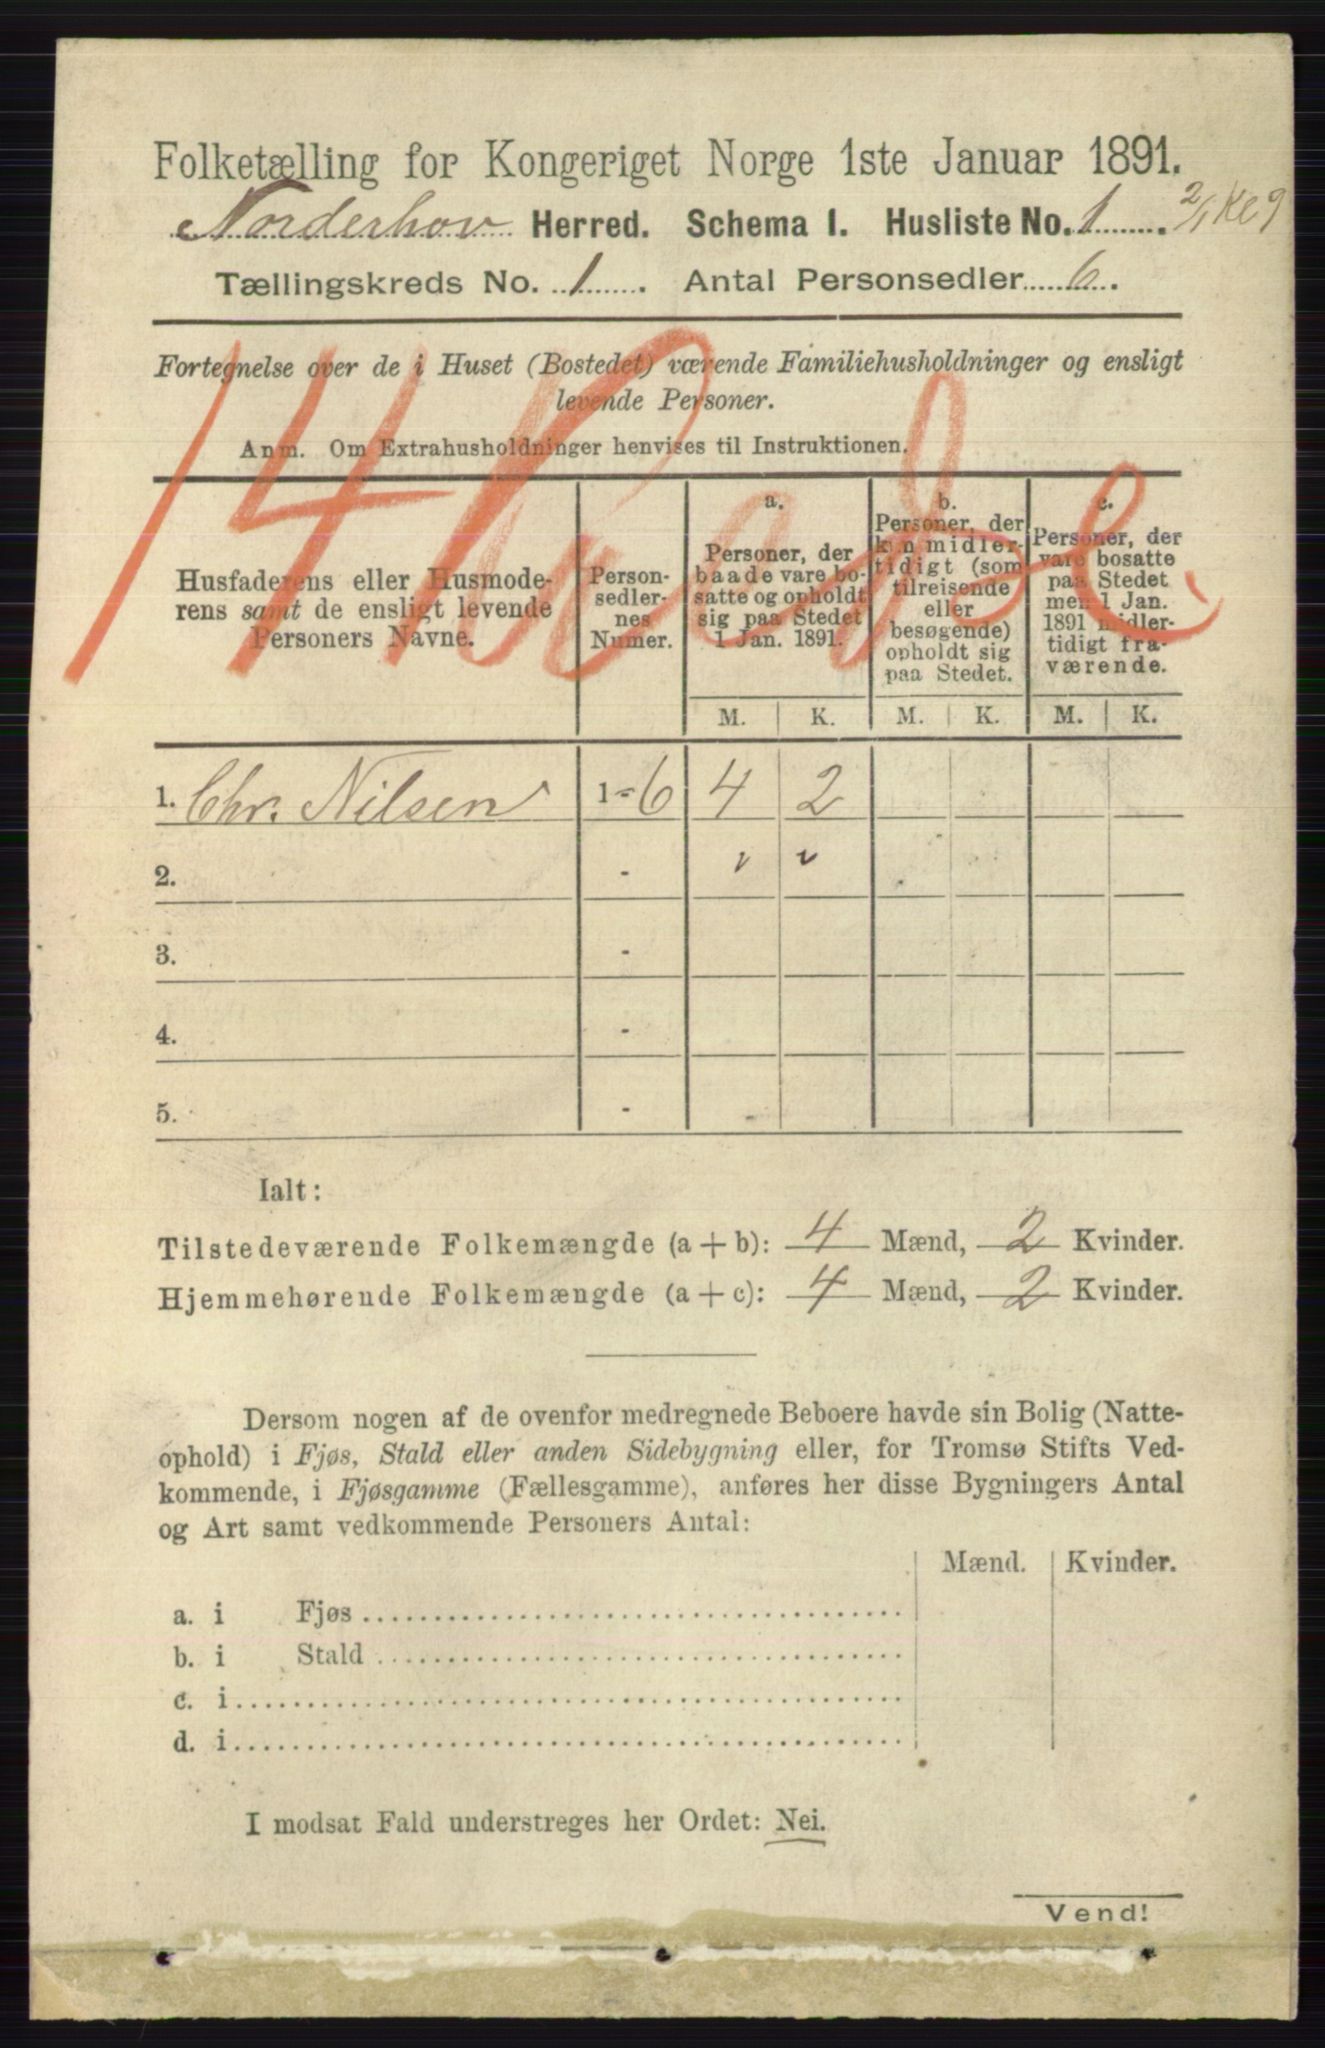 Folketælling for Kongeriget Norge 1ste Januar 1891.
Norderhov Herred. Schema I. Husliste No. 1. 2/1 Ke 9
Tællingskreds No. 1. Antal Personsedler 6.
Fortegnelse over de i Huset (Bostedet) værende Familiehusholdninger og ensligt
levende Personer.
Anm. Om Extrahusholdninger henvises til Instruktionen.
Husfaderens eller Husmode-
rens samt de ensligt levende
Personers Navne.
Person-
sedler-
nes
Numer.
a.
Personer, der
baade vare bo-
satte og opholdt
sig paa Stedet
1 Jan. 1891.
b.
Personer, der
kun midler-
tidigt (som
tilreisende
eller
besøgende)
opholdt sig
paa Stedet.
c.
Personer, der
vare bosatte
paa Stedet
men 1 Jan.
1891 midler-
tidigt fra-
værende.
M. K. M. K. M. K.
1. Chr. Nilsen 1-6 4 2
2. -
3. -
4. -
5. -
Ialt:
Tilstedeværende Folkemængde (a + b): 4 Mænd, 2 Kvinder.
Hjemmehørende Folkemængde (a + c): 4 Mænd, 2 Kvinder.
Dersom nogen af de ovenfor medregnede Beboere havde sin Bolig (Natte-
ophold) i Fjøs, Stald eller anden Sidebygning eller, for Tromsø Stifts Ved-
kommende, i Fjøsgamme (Fællesgamme), anføres her disse Bygningers Antal
og Art samt vedkommende Personers Antal:
Mænd. Kvinder.
a. i Fjøs
b. i Stald
c. i
d. i
I modsat Fald understreges her Ordet: Nei.
Vend!